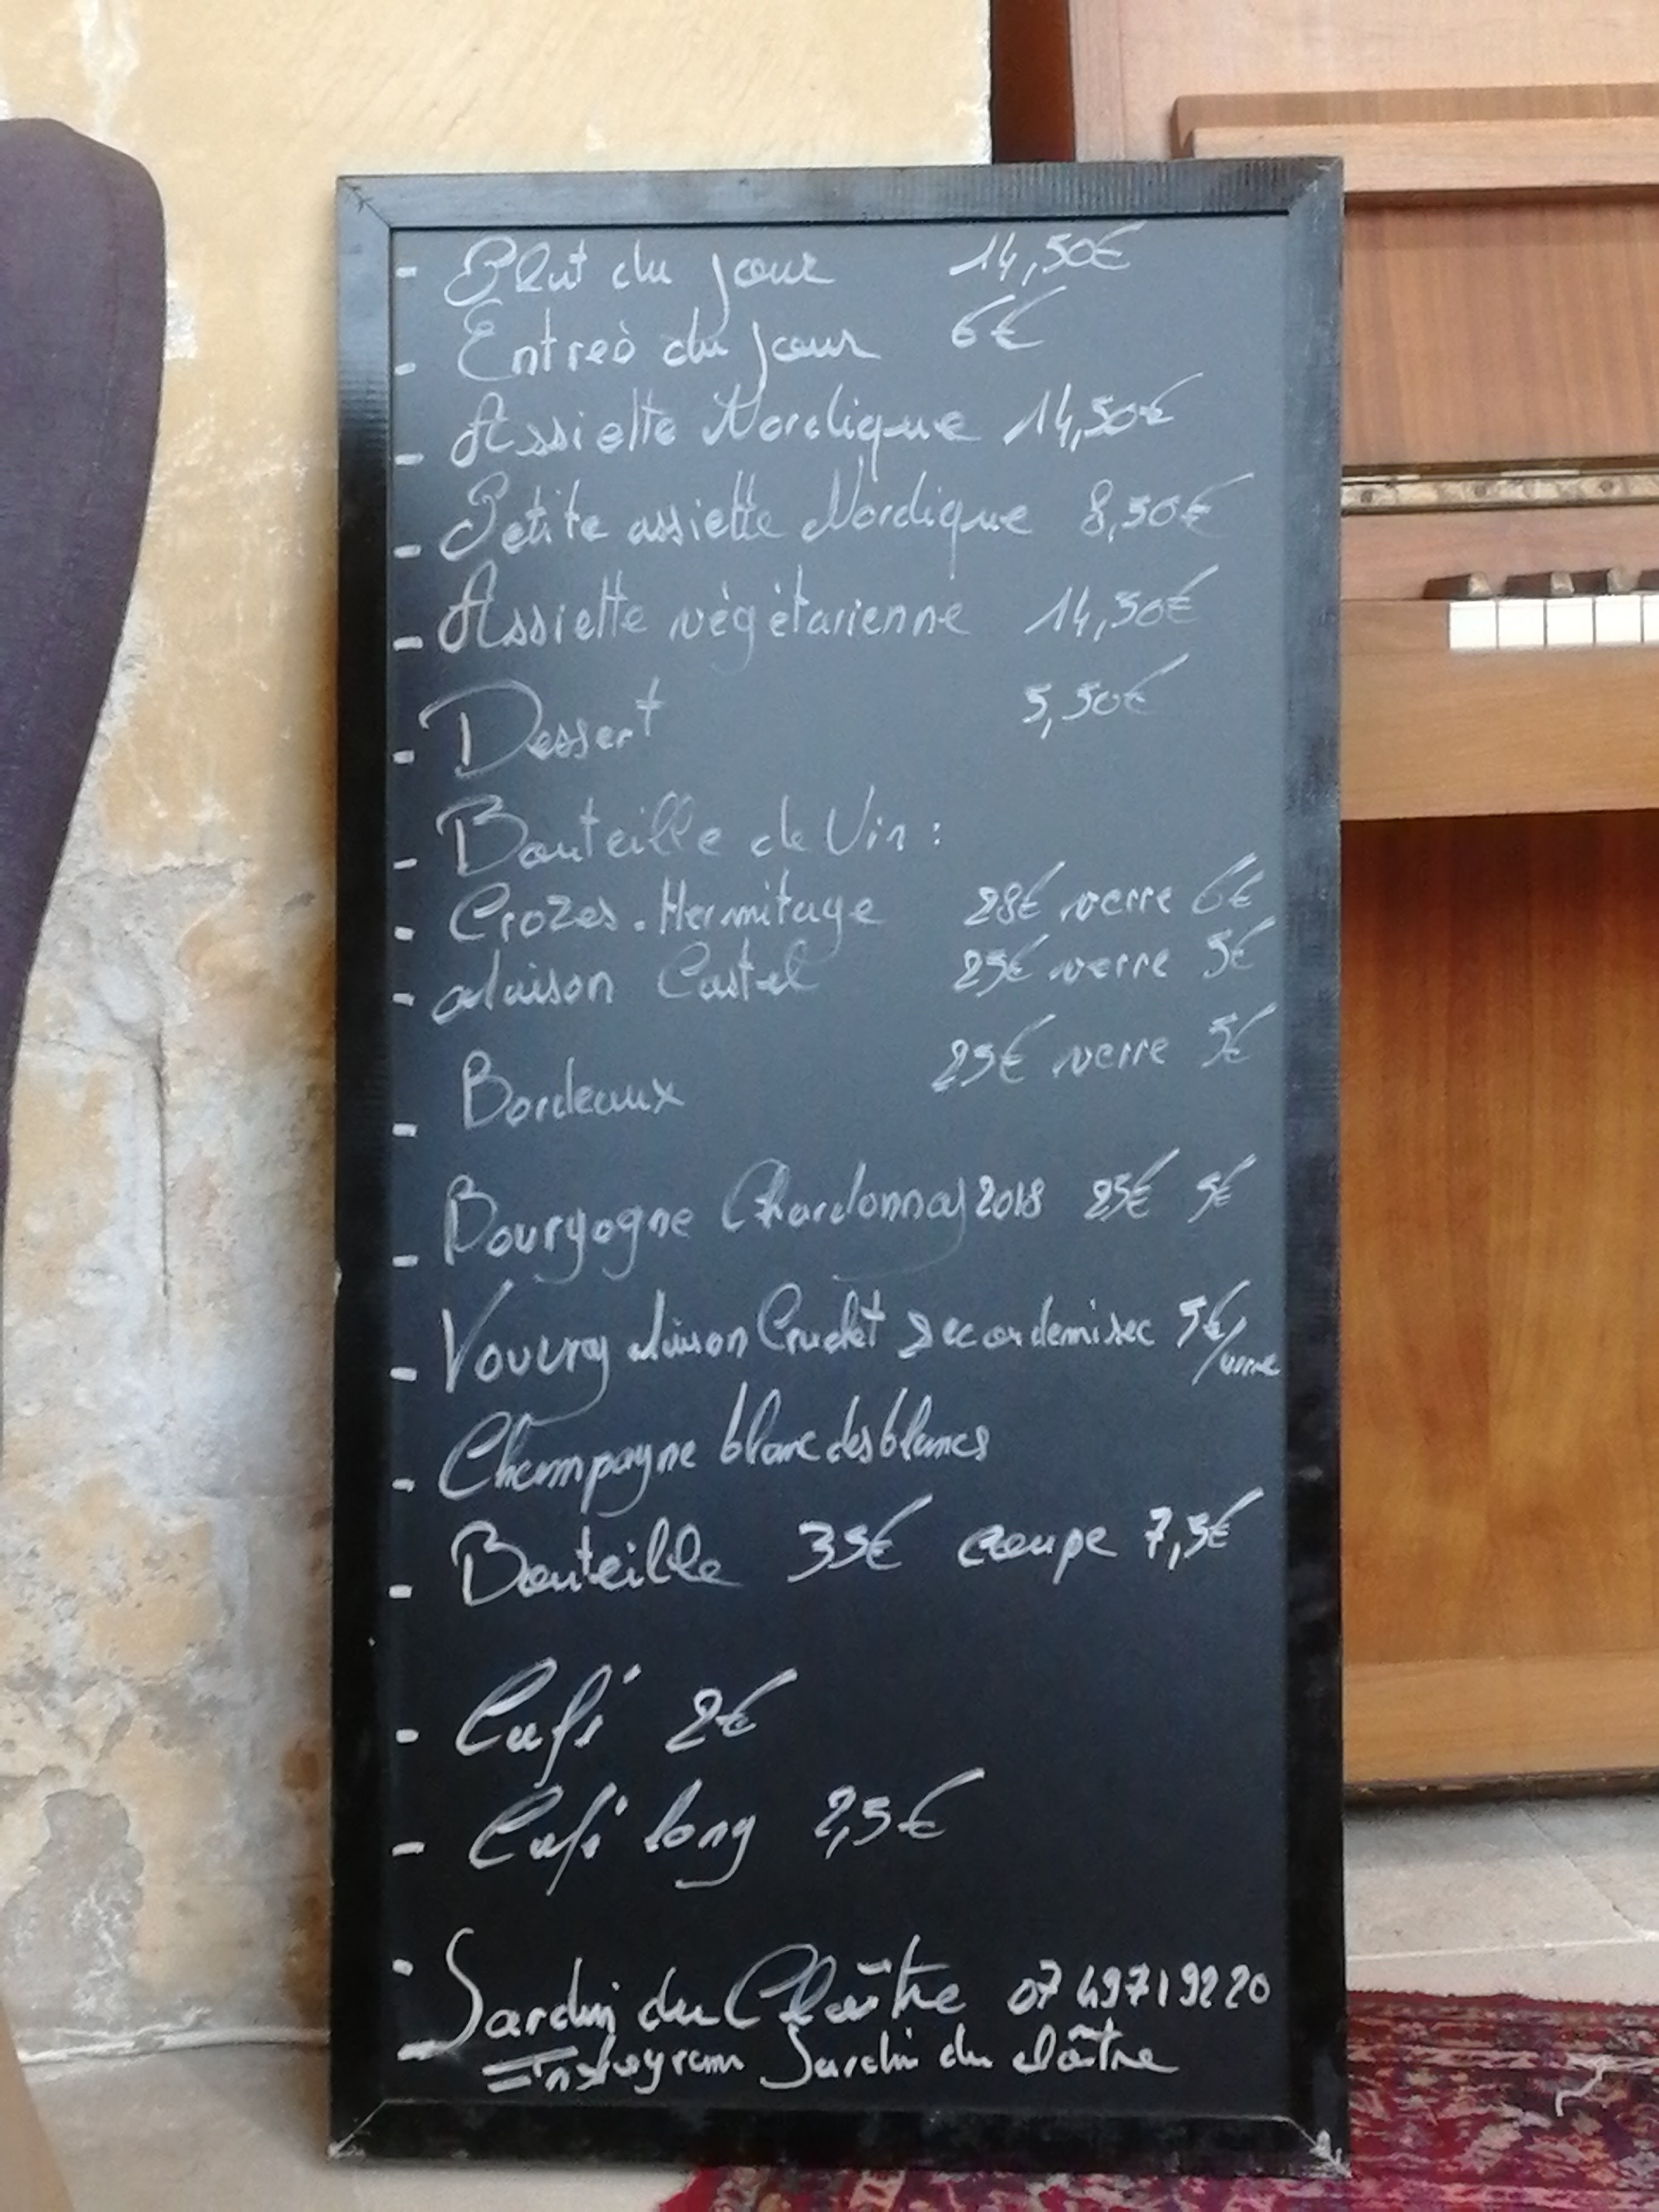 - Plat du jour 14,50€
- Entreè du jour 6€
- Assiette Nordique 14,50€
- Petite assiette Nordique 8,50€
- Assiette végétarienne 14,50€
- Dessert 5,50€
- Bouteille de Vin :
- Crozes-Hermitage 28€ verre 6€
- Maison Castel 25€ verre 5€
- Bordeaux 25€ verre 5€
- Bourgogne Chardonnay 2018 25€ 5€
- Vouvray Maison sec ou demi sec 5€/verre
- Champagne blanc des blancs
- Bouteille 35€ coupe 7,5€
- Café 2€
- Café long 2,5€
- Jardin du Cloître 07 49719220
- Instagram Jardin du cloître